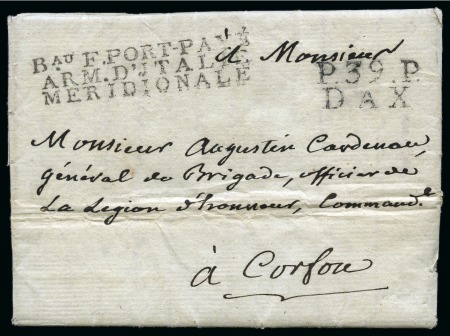 BAU F. PORT-PAYÉ
ARM. D'ITALIE
MERIDIONALE
à Monsieur
P.39.P.
DAX
Monsieur Augustin Cardenau,
général de Brigade, officier de
La Legion d'honneur, Command.t
à Corfou